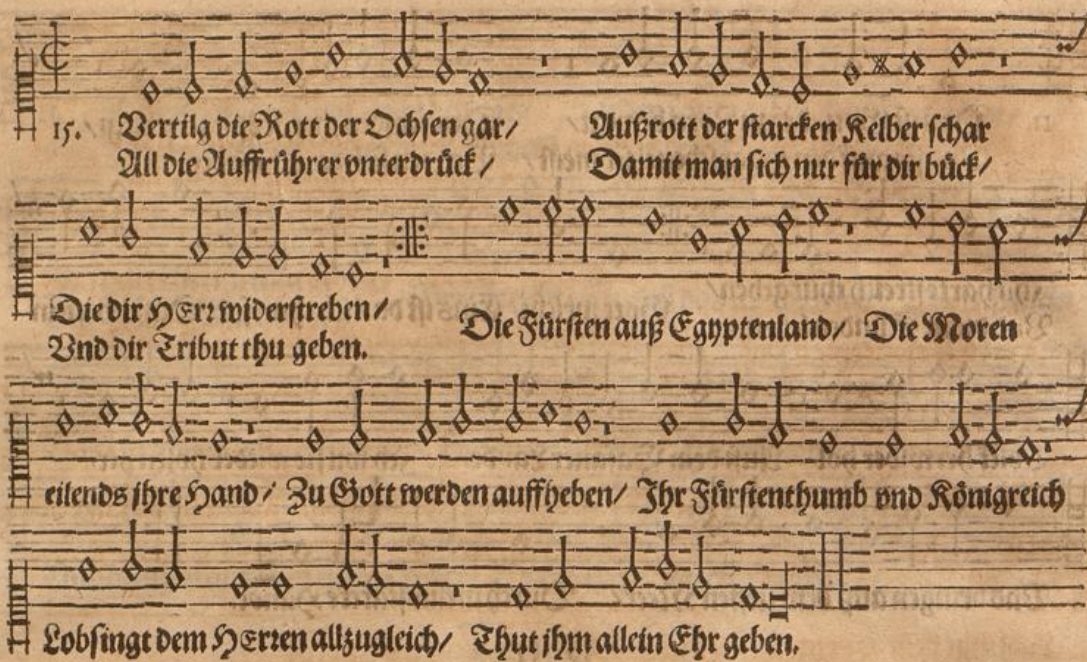 15. Vertilg die Rott der Ochsen gar/ Außrott der starcken Kelber schar
All die Auffrührer vnterdrück/ Damit man sich nur für dir bück/
Die dir HErr widerstreben/
Vnd dir Tribut thu geben.
Die Fürsten auß Egyptenland/ Die Moren
eilends jhre Hand/ Zu Gott werden auffheben/ Jhr Fürstenthumb vnd Königreich
Lobsingt dem HErren allzugleich/ Thut jhm allein Ehr geben.